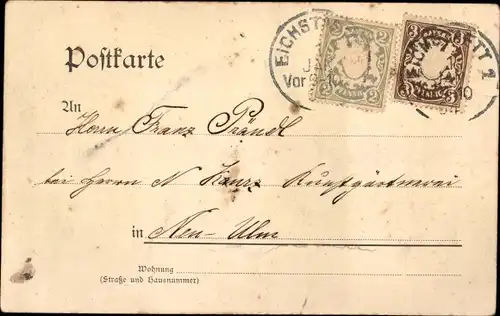 Postkarte
EICHST
2
2
2
2
3
3
3
3
Vor
10
1
An
Herrn Franz Prändl
bei Herrn N Kurz Kunstgärtnerei
in Neu-Ulm
Wohnung
(Straße und Hausnummer)